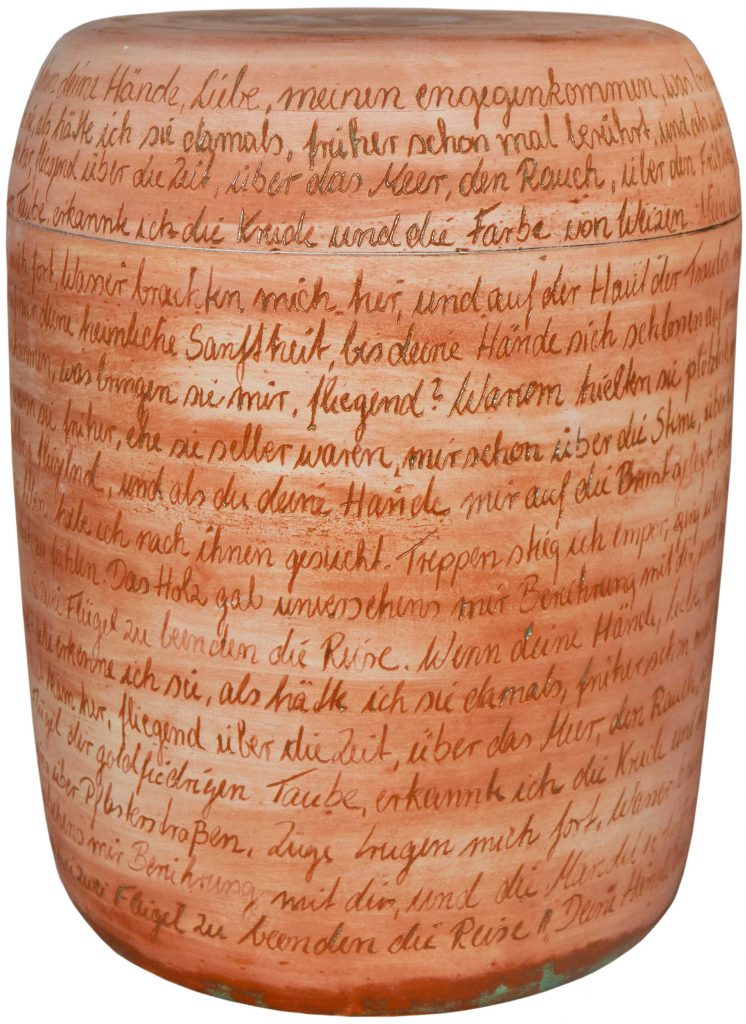 deine Hände, Liebe, meinen engegenkommen, was
als hätte ich sie damals, früher schon mal berührt, und als
fliegend über die Zeit, über das Meer, den Rauch, über den
Taube, erkannte ich die Kreide und die Farbe von Weizen. Mein
fort, Wasser brachten mich her, und auf der Haut der Trauben
deine heimliche Sanftheit, bis deine Hände sich schlossen auf
was bringen sie mir, fliegend? Warum hielten sie plötzlich
sie früher, ehe sie selber waren, mir schon über die Stirne,
fliegend, und als du deine Hände mir auf die Brust gelegt,
habe ich nach ihnen gesucht. Treppen stieg ich empor, ging
fehlen. Das Holz gab unversehens mir Berührung mit dir,
zwei Flügel zu beenden die Reise. Wenn deine Hände, Liebe,
erkenne ich sie, als hätte ich sie damals, früher schon
kam her, fliegend über die Zeit, über das Meer, den Rauch,
Flügel der goldfiedrigen Taube, erkannte ich die Kreide und
über Pflasterstraßen, Züge trugen mich fort, Wasser
mir Berührung mit dir, und die Mandel
zwei Flügel zu beenden die Reise. Deine